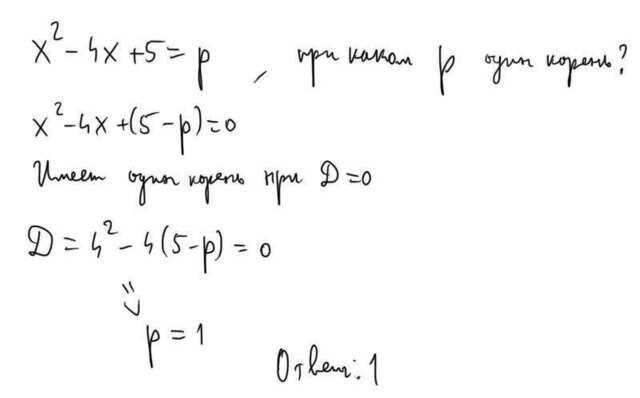 x² - 4x + 5 = p, при каком p один корень?
x² - 4x + (5 - p) = 0
Имеет один корень при D = 0
D = 4² - 4(5 - p) = 0
⇓
p = 1
Ответ: 1